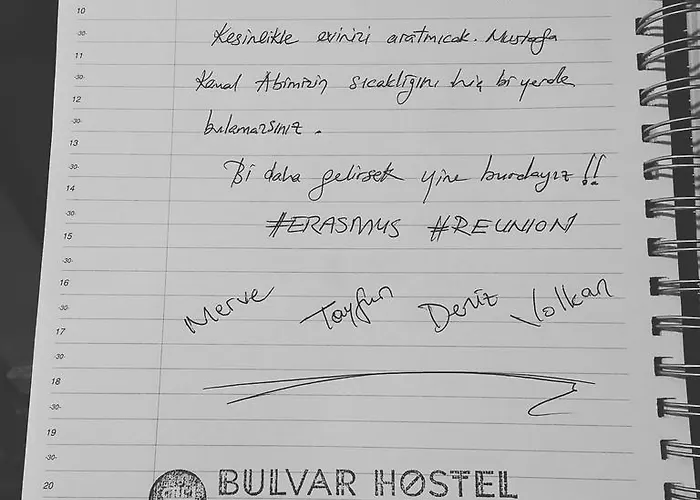 10
-30-
Kesinlikle evinizi aratmıcak. Mustafa
11
-30-
Kemal Abimizin sıcaklığını hiç bi yerde
12
-30-
bulamazsınız.
13
-30-
Bi daha gelirsek yine burdayız!!
14
-30-
#ERASMUS #REUNION
15
-30-
16
-30-
Merve Tayfun Deniz Volkan
17
-30-
18
-30-
19
-30-
20
BULVAR HOSTEL